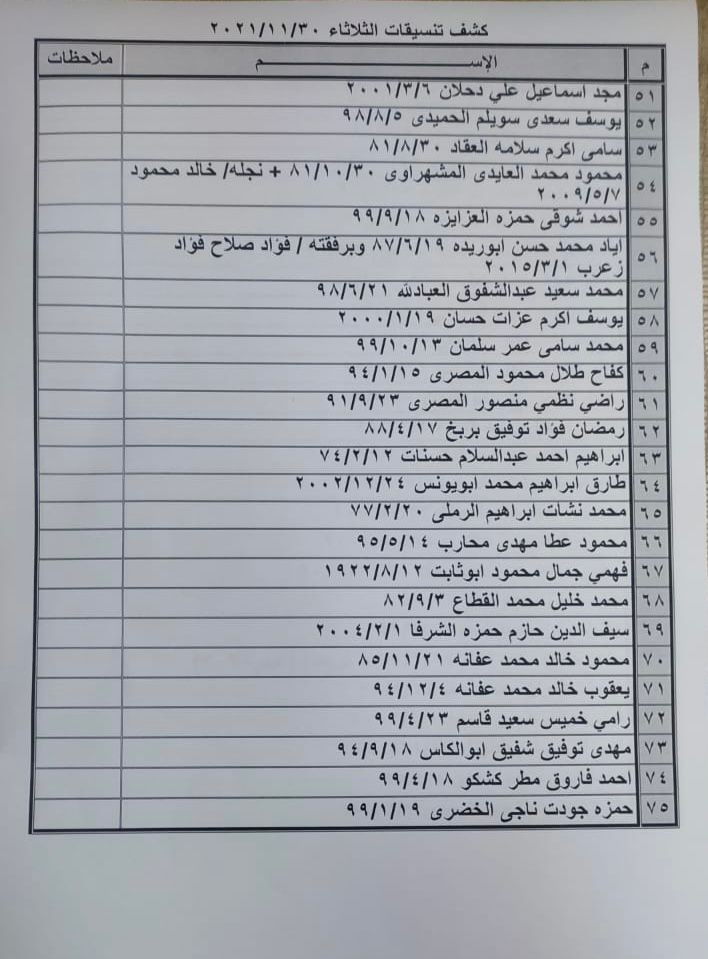 كشف تنسيقات الثلاثاء ٢٠٢١/١١/٣٠
م الإســــــــم ملاحظات
٥١ مجد اسماعيل علي دحلان ٢٠٠١/٣/٦
٥٢ يوسف سعدى سويلم الحميدى ٩٨/٨/٥
٥٣ سامى اكرم سلامه العقاد ٨١/٨/٣٠
٥٤ محمود محمد العايدى المشهراوى ٨١/١٠/٣٠ + نجله/ خالد محمود
٢٠٠٩/٥/٧
٥٥ احمد شوقى حمزه العزايزه ٩٩/٩/١٨
٥٦ اياد محمد حسن ابوريده ٨٧/٦/١٩ وبرفقته / فؤاد صلاح فؤاد
زعرب ٢٠١٥/٣/١
٥٧ محمد سعيد عبدالشفوق العبادلله ٩٨/٦/٢١
٥٨ يوسف اكرم عزات حسان ٢٠٠٠/١/١٩
٥٩ محمد سامى عمر سلمان ٩٩/١٠/١٣
٦٠ كفاح طلال محمود المصرى ٩٤/١/١٥
٦١ راضي نظمي منصور المصرى ٩١/٩/٢٣
٦٢ رمضان فؤاد توفيق بربخ ٨٨/٤/١٧
٦٣ ابراهيم احمد عبدالسلام حسنات ٧٤/٢/١٢
٦٤ طارق ابراهيم محمد ابويونس ٢٠٠٢/١٢/٢٤
٦٥ محمد نشات ابراهيم الرملى ٧٧/٢/٢٠
٦٦ محمود عطا مهدى محارب ٩٥/٥/١٤
٦٧ فهمي جمال محمود ابوثابت ١٩٢٢/٨/١٢
٦٨ محمد خليل محمد القطاع ٨٢/٩/٣
٦٩ سيف الدين حازم حمزه الشرفا ٢٠٠٤/٢/١
٧٠ محمود خالد محمد عفانه ٨٥/١١/٢١
٧١ يعقوب خالد محمد عفانه ٩٤/١٢/٤
٧٢ رامي خميس سعيد قاسم ٩٩/٤/٢٣
٧٣ مهدى توفيق شفيق ابوالكاس ٩٤/٩/١٨
٧٤ احمد فاروق مطر كشكو ٩٩/٤/١٨
٧٥ حمزه جودت ناجى الخضرى ٩٩/١/١٩